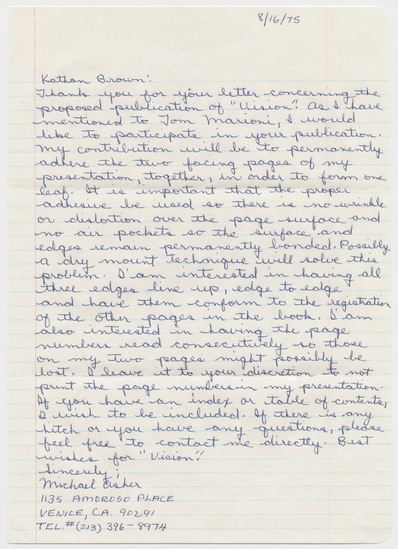 8/16/75
Kathan Brown:
Thank you for your letter concerning the
proposed publication of "Vision". As I have
mentioned to Tom Marioni, I would
like to participate in your publication.
My contribution will be to permanently
adhere the two facing pages of my
presentation, together, in order to form one
leaf. It is important that the proper
adhesive be used so there is no wrinkle
or distortion over the page surface and
no air pockets so the surface and
edges remain permanently bonded. Possibly
a dry mount technique will solve this
problem. I am interested in having all
three edges line up, edge to edge
and have them conform to the registration
of the other pages in the book. I am
also interested in having the page
numbers read consecutively so those
on my two pages might possibly be
lost. I leave it to your discretion to not
print the page numbers in my presentation.
If you have an index or table of contents,
I wish to be included. If there is any
hitch or you have any questions, please
feel free to contact me directly. Best
wishes for "Vision".
Sincerely,
Michael Asher
1135 AMOROSO PLACE
VENICE, CA. 90291
TEL.# (213) 396-8974